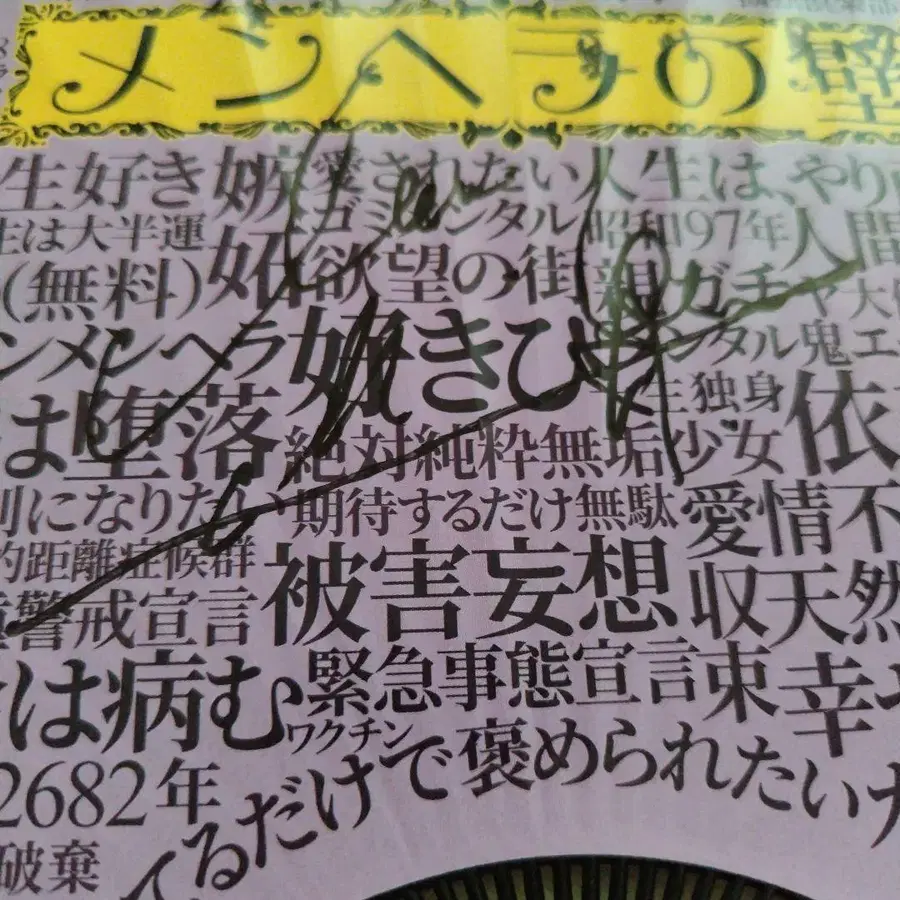 メンヘラの壁
生好き
嫉妬
愛されたい
人生は、やり
生は大半運
メガミメンタル
昭和97年
人間
(無料)
欲望の街
親ガチャ
大
ンメンヘラ
好きひ
メンタル鬼エ
一生独身
は堕落
絶対純粋無垢少女
依
別になりたい
期待するだけ無駄
愛情不
的距離症候群
警戒宣言
被害妄想
収
天然
は病む
緊急事態宣言
束
幸
ワクチン
2682年
てるだけで褒められたい
破棄